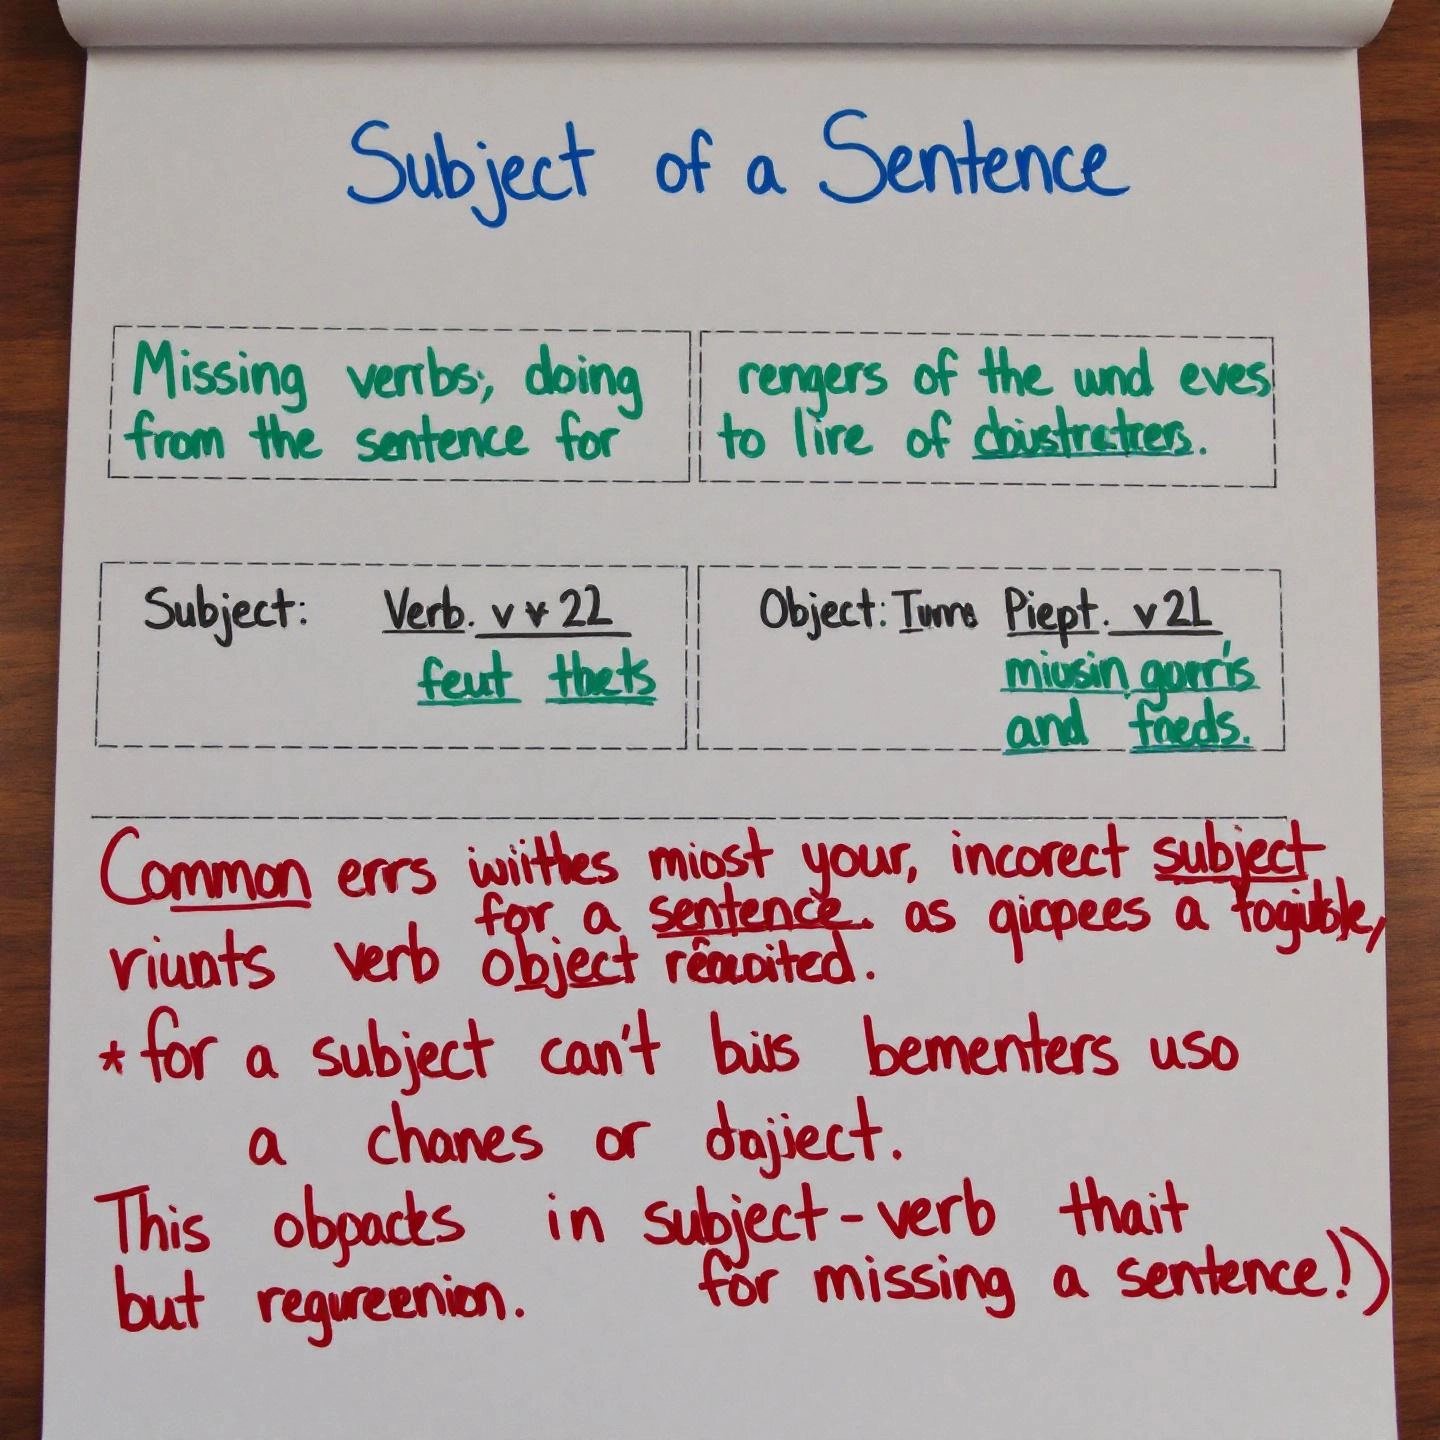 Subject of a Sentence
Missing verrbs;, doing
from the sentence for
rengers of the und eves
to lire of
Subject: Verb. v v 22
feut thets
Object: Piept. v 2L
miusin gorr's
and fneds.
Common errs wiithes miost your, incorect subject
for a sentence. as giopees a
riunts verb object
* for a subject can't bius bementers uso
a chanes or dajiect.
This obpacks in subject-verb thait
but regureenion. for missing a sentence!)